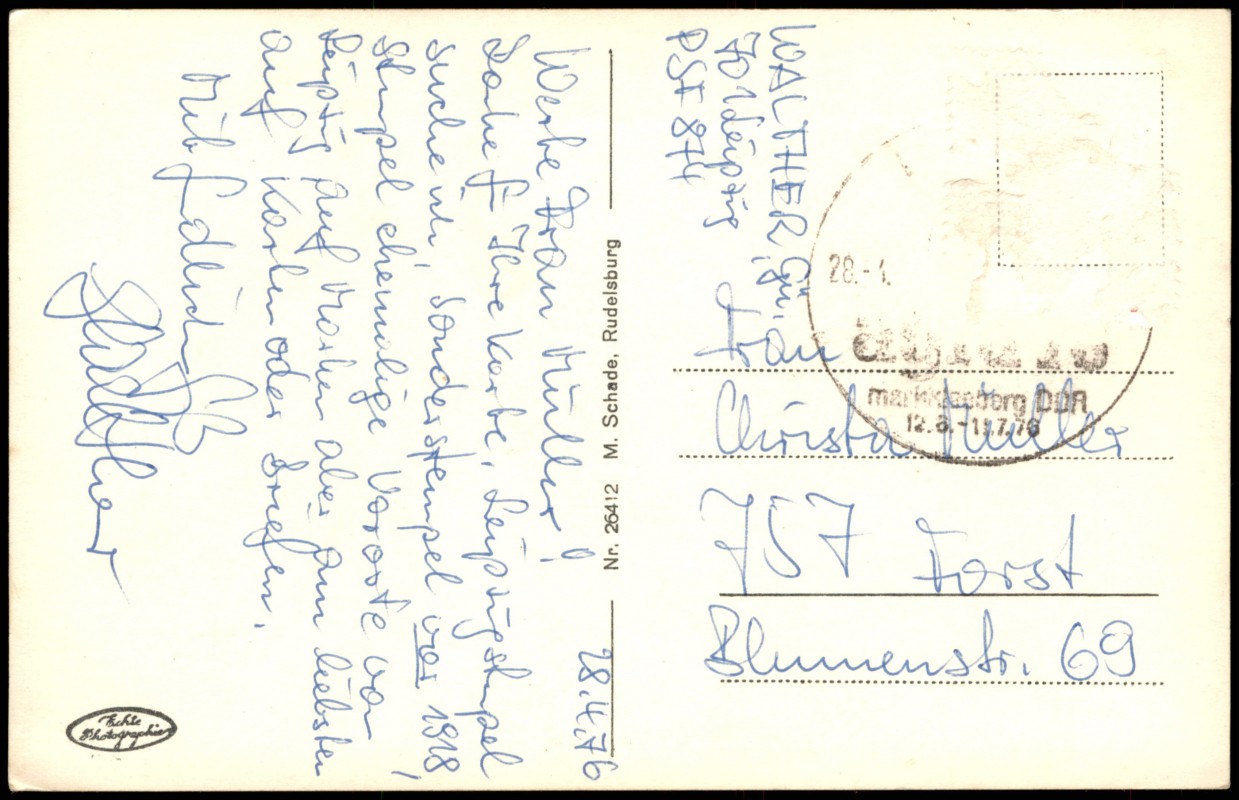 28.4.76
Werte Frau Müller!
Danke f. Ihre Karte. Leipzigstempel
suche ich, Sonderstempel vor 1918,
Stempel ehemalige Vororte von
Leipzig auf Marken aber am liebsten
auf Karten oder Briefen.
Mit fdlich
Nr. 26412 M. Schade, Rudelsburg
Echte
Photographie
WALTHER, Gü.
701 Leipzig
PSF 874
28.-4.
markkleeberg DDR
12.6.-11.7.76
Frau
Christa Müller
757 Forst
Blumenstr. 69